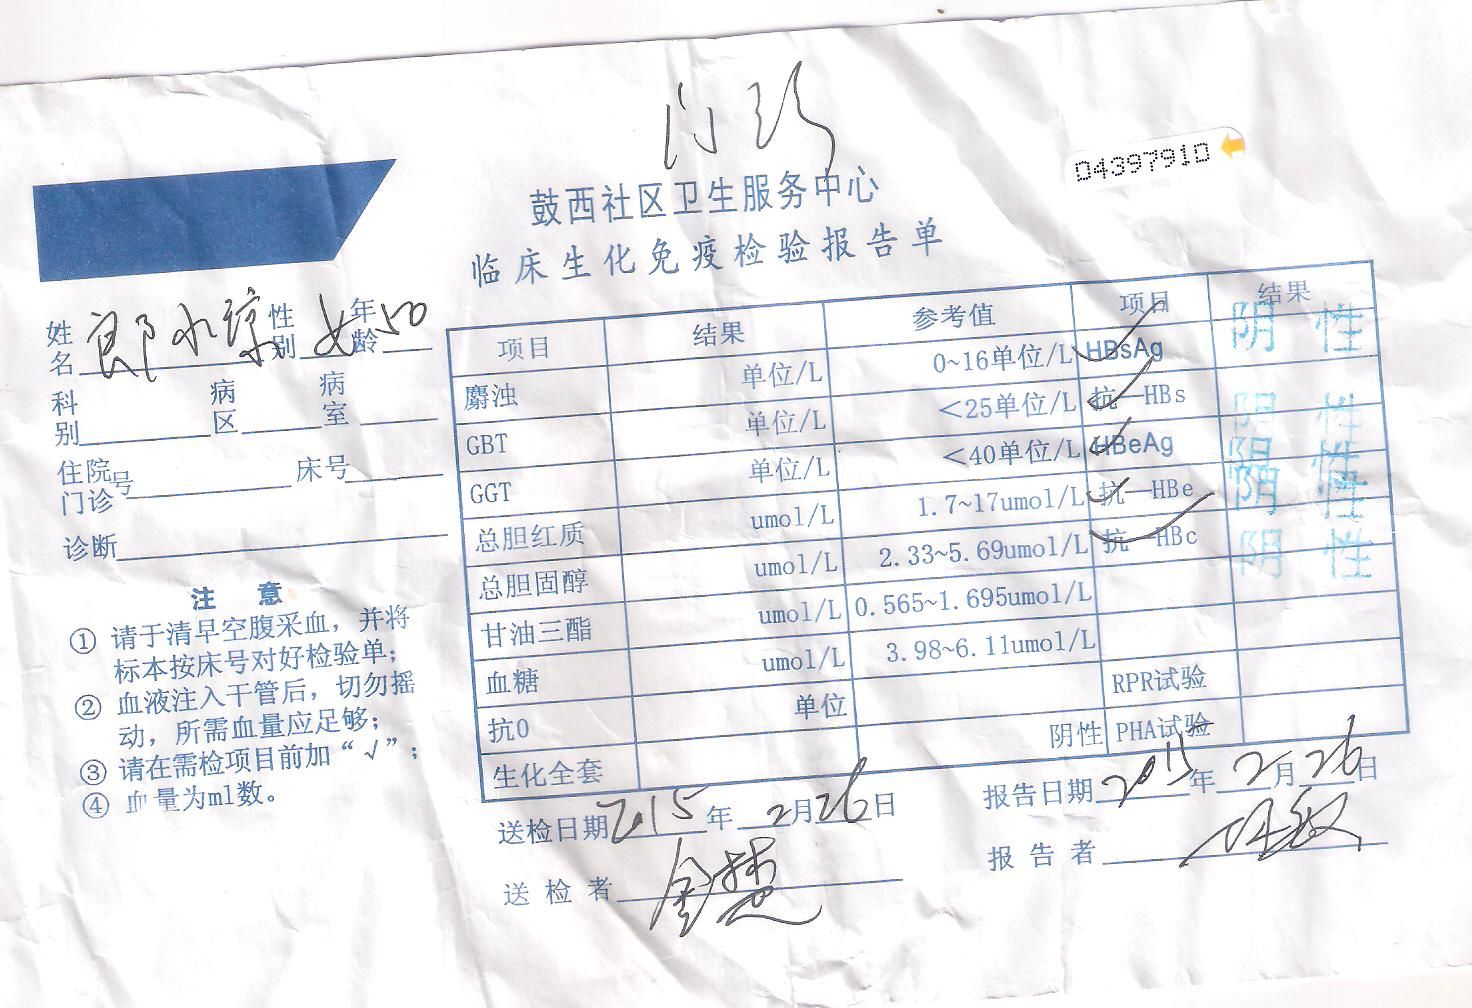 门诊
04397910
鼓西社区卫生服务中心
临床生化免疫检验报告单
姓名 郎水 性别 女 年龄 50
科别 病区 病室
住院门诊号 床号
诊断
注 意
① 请于清早空腹采血，并将
标本按床号对好检验单；
② 血液注入干管后，切勿摇
动，所需血量应足够；
③ 请在需检项目前加“√”；
④ 血量为ml数。
项目 结果 参考值 项目 结果
麝浊 单位/L 0~16单位/L ✓HBsAg 阴性
GBT 单位/L <25单位/L ✓抗—HBs 阴性
GGT 单位/L <40单位/L ✓HBeAg 阴性
总胆红质 umol/L 1.7~17umol/L ✓抗—HBe 阴性
总胆固醇 umol/L 2.33~5.69umol/L ✓抗—HBc 阴性
甘油三酯 umol/L 0.565~1.695umol/L
血糖 umol/L 3.98~6.11umol/L
抗0 单位 RPR试验
生化全套 阴性 PHA试验
送检日期 2015年 2月 26日
报告日期 2015年 2月 26日
送检者
报告者